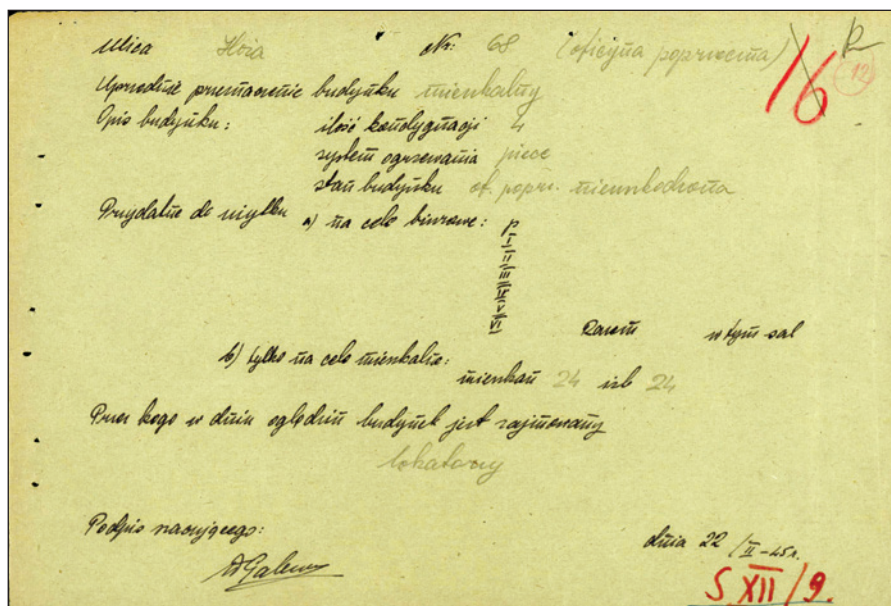 Ulica Hoża Nr: 68 (oficyna poprzeczna) 16 12
Uprzednie przeznaczenie budynku mieszkalny
Opis budynku: ilość kondygnacji 4
system ogrzewania piece
stan budynku of. poprz. nieuszkodzona
Przydatne do użytku a) na cele biurowe: p
I
II
III
IV
V
VI
Razem w tym sal
b) tylko na cele mieszkalne:
mieszkań 24 izb 24
Przez kogo w dniu oględzin budynek jest zajmowany
lokatorzy
Podpis
dnia 22/II-45r.
S.XII/9.